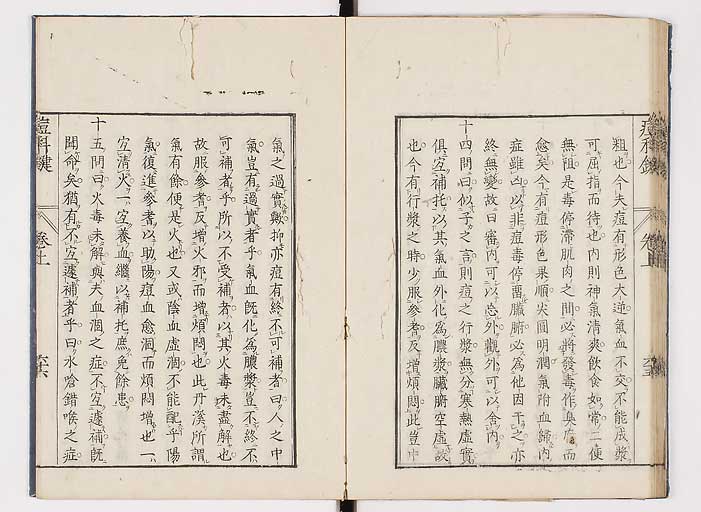 粗也今夫痘有形色大逆氣血不交不能成漿
可屈指而待也内則神氣清爽飲食如常二便
無阻是毒停滯肌肉之間必將發毒作臭而
愈矣今有痘形色果順尖圓明潤氣附血歸内
症雖凶以非痘毒停留臟腑必為他因干之亦
終無變故曰審内可以忘外觀外可以舍内
十四問曰似子之言則痘之行漿無分寒熱虛實
俱宜補托以其氣血外化為膿漿臟腑空虛故
也今有行漿之時少服參者反增煩悶此豈中
氣之過實歟抑亦痘有終不可補者曰人之中
氣豈有過實者乎氣血既化為膿漿豈不終不
可補者乎所以不受補者以其火毒未盡解也
故服參者反增火邪而增煩悶也此丹溪所謂
氣有餘便是火也又或陰血虛涸不能配乎陽
氣復進參者以助陽痘血愈涸而煩悶增也一
宜清火一宜養血繼以補托庶免餘患
十五問曰火毒未解與夫血涸之症不宜遽補既
聞命矣猶有不宜遽補者乎曰水嗆錯喉之症
痘科鍵
卷上
六十六